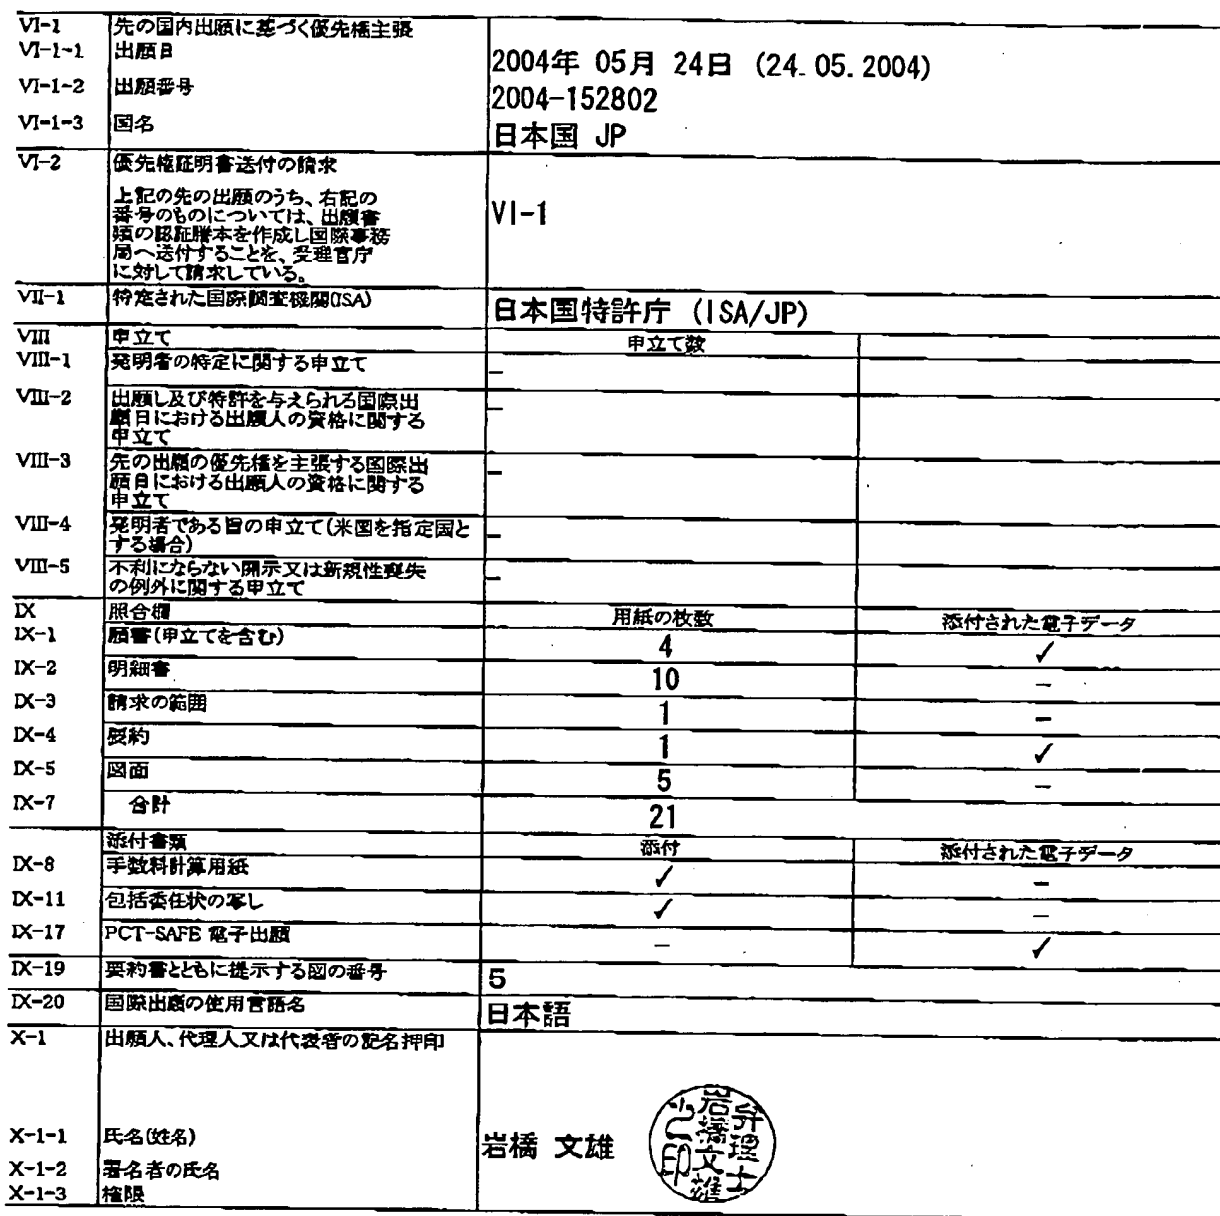 VI-1 先の国内出願に基づく優先権主張
VI-1-1 出願日 2004年 05月 24日 (24.05.2004)
VI-1-2 出願番号 2004-152802
VI-1-3 国名 日本国 JP
VI-2 優先権証明書送付の請求
上記の先の出願のうち、右記の
番号のものについては、出願書
類の認証謄本を作成し国際事務
局へ送付することを、受理官庁
に対して請求している。
VI-1
VII-1 特定された国際調査機関(ISA) 日本国特許庁 (ISA/JP)
VIII 申立て 申立て数
VIII-1 発明者の特定に関する申立て –
VIII-2 出願し及び特許を与えられる国際出
願日における出願人の資格に関する
申立て
–
VIII-3 先の出願の優先権を主張する国際出
願日における出願人の資格に関する
申立て
–
VIII-4 発明者である旨の申立て(米国を指定国と
する場合)
–
VIII-5 不利にならない開示又は新規性喪失
の例外に関する申立て
–
IX 照合欄 用紙の枚数 添付された電子データ
IX-1 願書(申立てを含む) 4 ✓
IX-2 明細書 10 –
IX-3 請求の範囲 1 –
IX-4 要約 1 ✓
IX-5 図面 5 –
IX-7 合計 21
添付書類 添付 添付された電子データ
IX-8 手数料計算用紙 ✓ –
IX-11 包括委任状の写し ✓ –
IX-17 PCT-SAFE 電子出願 – ✓
IX-19 要約書とともに提示する図の番号 5
IX-20 国際出願の使用言語名 日本語
X-1 出願人、代理人又は代表者の記名押印
X-1-1 氏名(姓名) 岩橋 文雄
弁理士
岩橋文雄
之印
X-1-2 署名者の氏名
X-1-3 権限